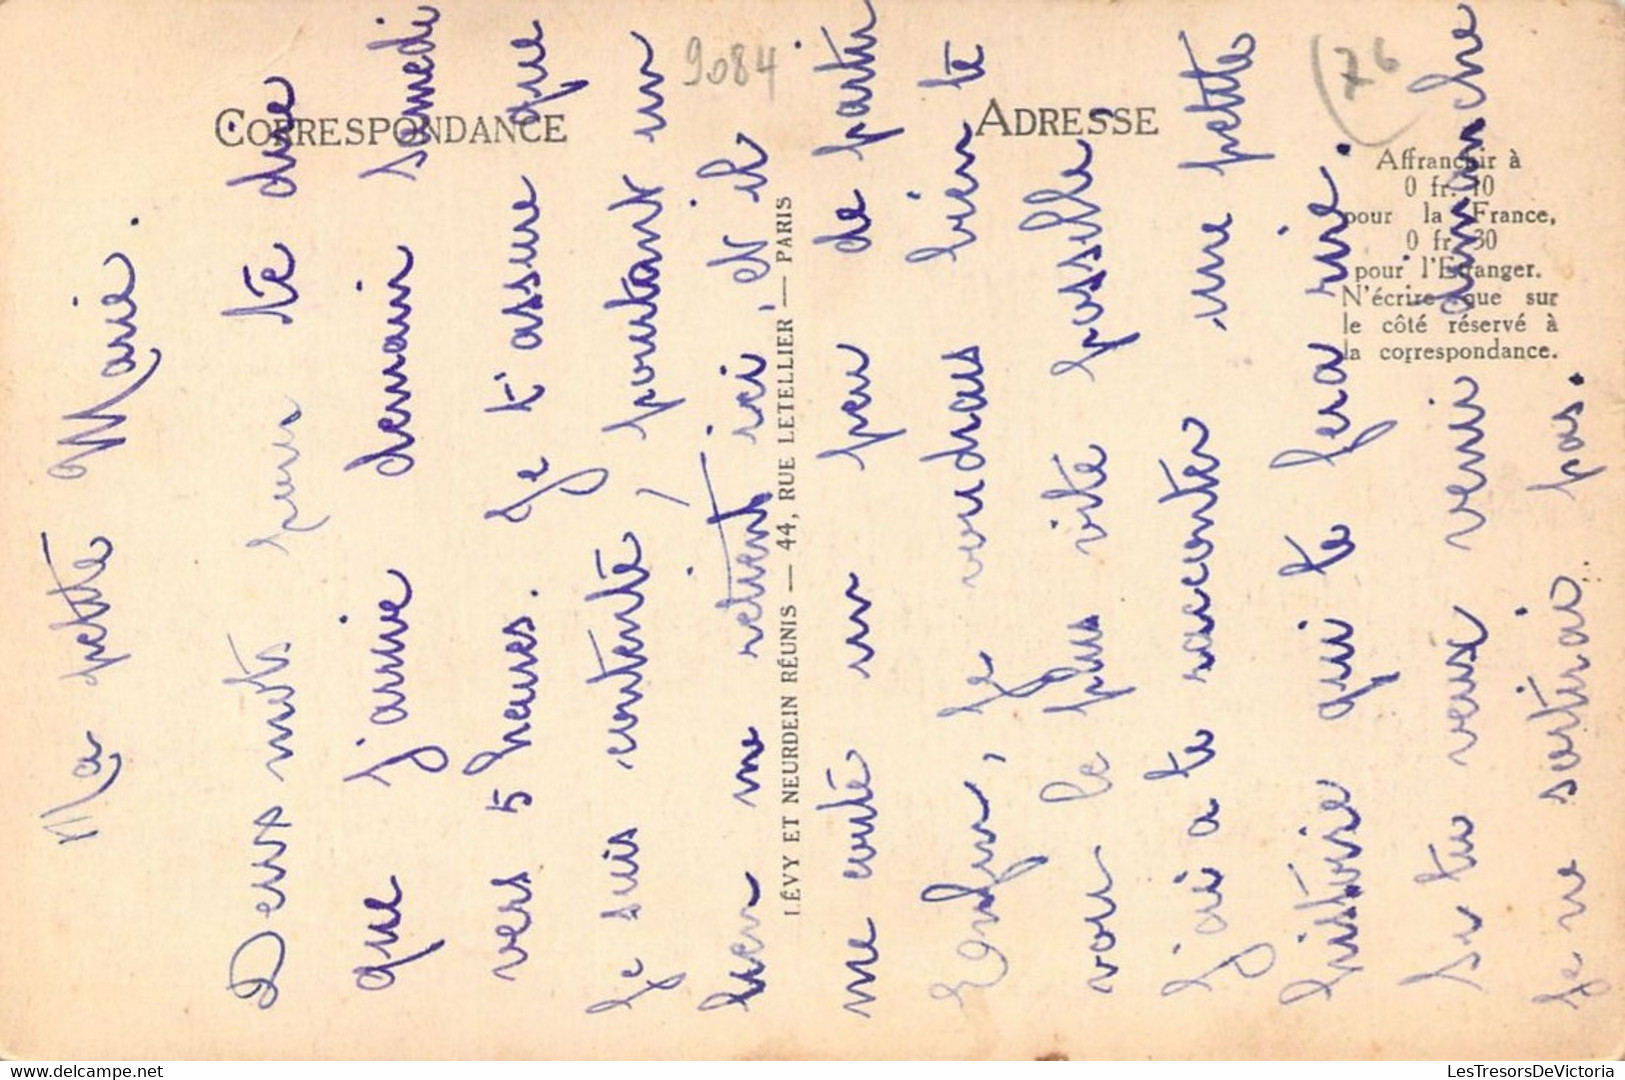 CORRESPONDANCE
ADRESSE
9084
76
Affranchir à
0 fr. 10
pour la France,
0 fr. 30
pour l'Etranger.
N'écrire que sur
le côté réservé à
la correspondance.
LÉVY ET NEURDEIN RÉUNIS — 44, RUE LETELLIER — PARIS
Ma petite Marie.
Deux mots pour te dire
que j'arrive demain samedi
vers 5 heures. Je t'assure que
je suis contente, pourtant un
bien me retient ici, et il
me coute un peu de partir
Enfin, je voudrais bien te
voir le plus vite possible,
j'ai a te raconter une petite
histoire qui te fera rire.
Si tu veux venir dimanche
je ne sortirai pas.
LesTresorsDeVictoria
www.delcampe.net